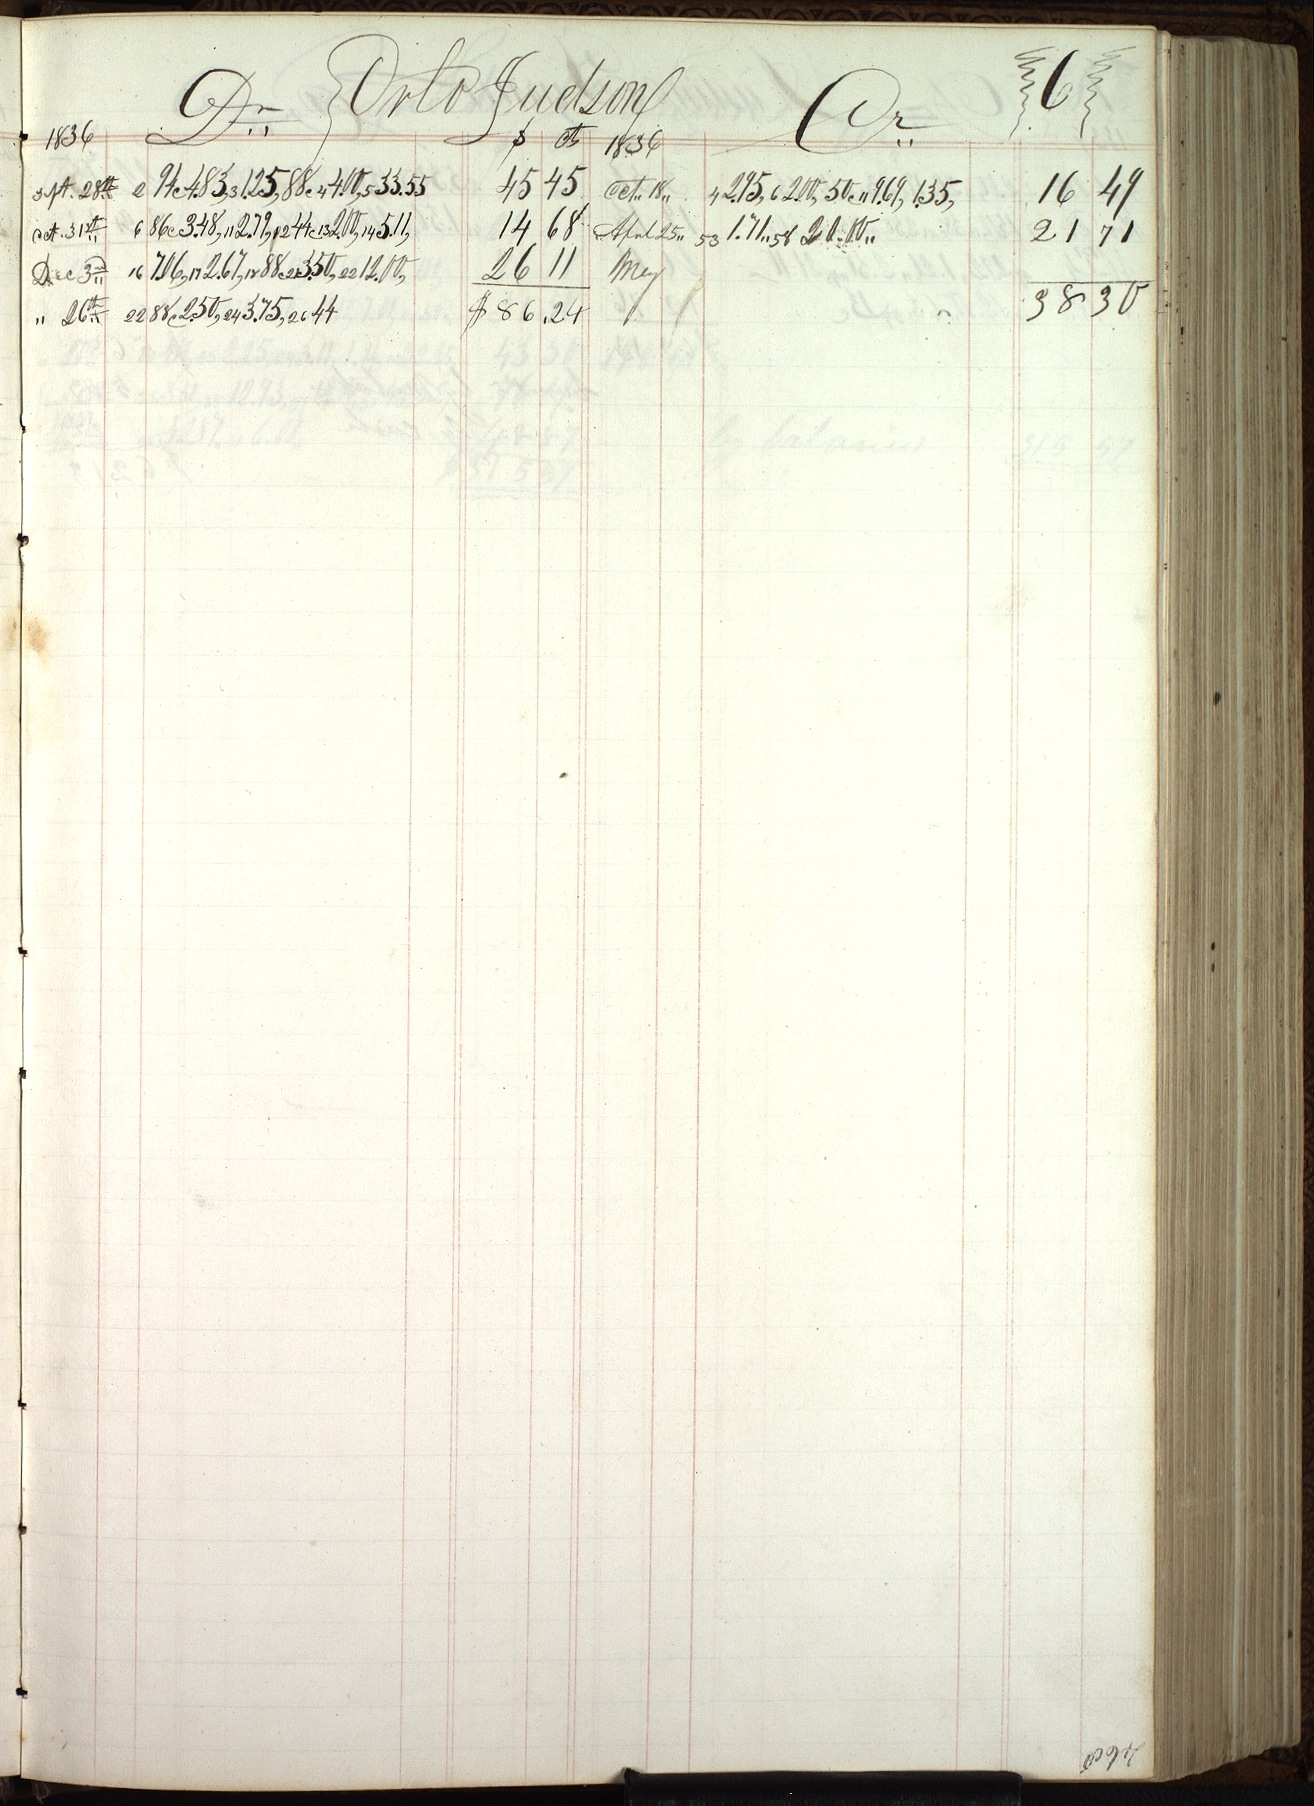 Dr Orlo Judson Cr 6
1836 $ cts 1836
Spt. 28th 2 94c 4.83, 3 1.25, 88c 4 4.00, 5 33.55 45 45 Oct. 18 4 2.95, 6 2.00, 50c 11 9.69, 1.35, 16 49
Oct. 31st 6 86c 3.48, 11 2.79, 12 44c 13 2.00, 14 5.11, 14 68 Aprl 25 53 1.71 58 20.00 21 71
Dec 3d 16 7.06, 17 2.67, 18 88c 21 3.50, 22 12.00, 26 11 May
" 26th 22 88c 2.50, 24 3.75, 26 44 $86.24 38 30